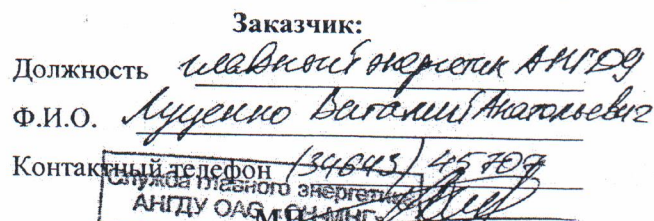 Заказчик:
Должность главный энергетик АНГДУ
Ф.И.О. Луценко Виталий Анатольевич
Контактный телефон (34643) 45707
Служба главного энергетика
АНГДУ ОАО "СН-МНГ"
М.П.